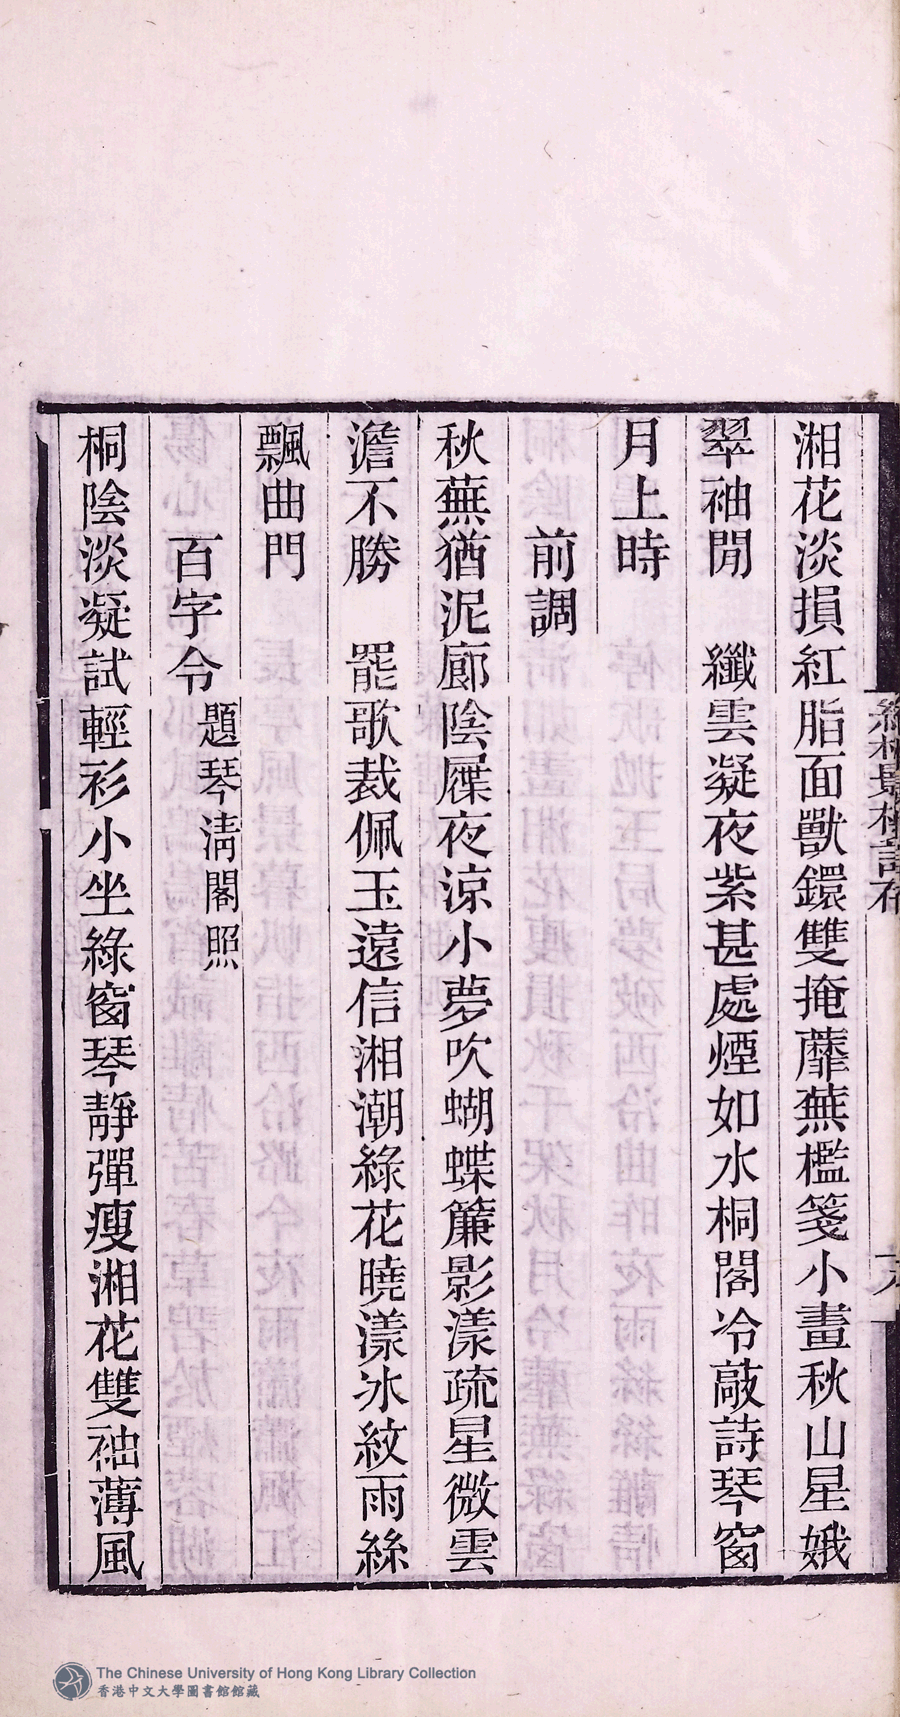 湘花淡損紅脂面獸鐶雙掩蘼蕪檻箋小畫秋山星娥
翠袖閒　纖雲凝夜紫甚處煙如水桐閣冷敲詩琴窗
月上時
前調
秋蕪猶泥廊陰屧夜涼小夢吹蝴蝶簾影漾疏星微雲
澹不勝　罷歌裁佩玉遠信湘潮綠花曉漾冰紋雨絲
飄曲門
百字令 題琴清閣照
桐陰淡凝試輕衫小坐綠窗琴靜彈瘦湘花雙袖薄風
The Chinese University of Hong Kong Library Collection
香港中文大學圖書館館藏